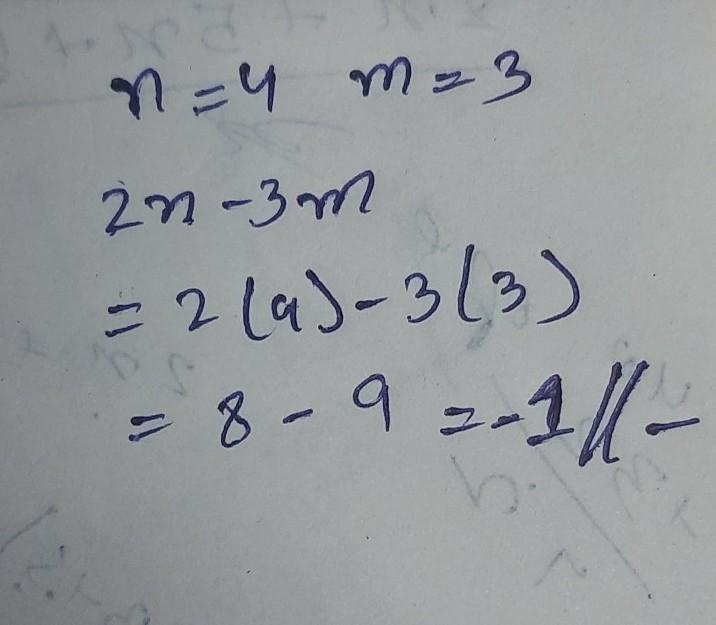 n = 4 m = 3
2n - 3m
= 2(4) - 3(3)
= 8 - 9 = -1 // -